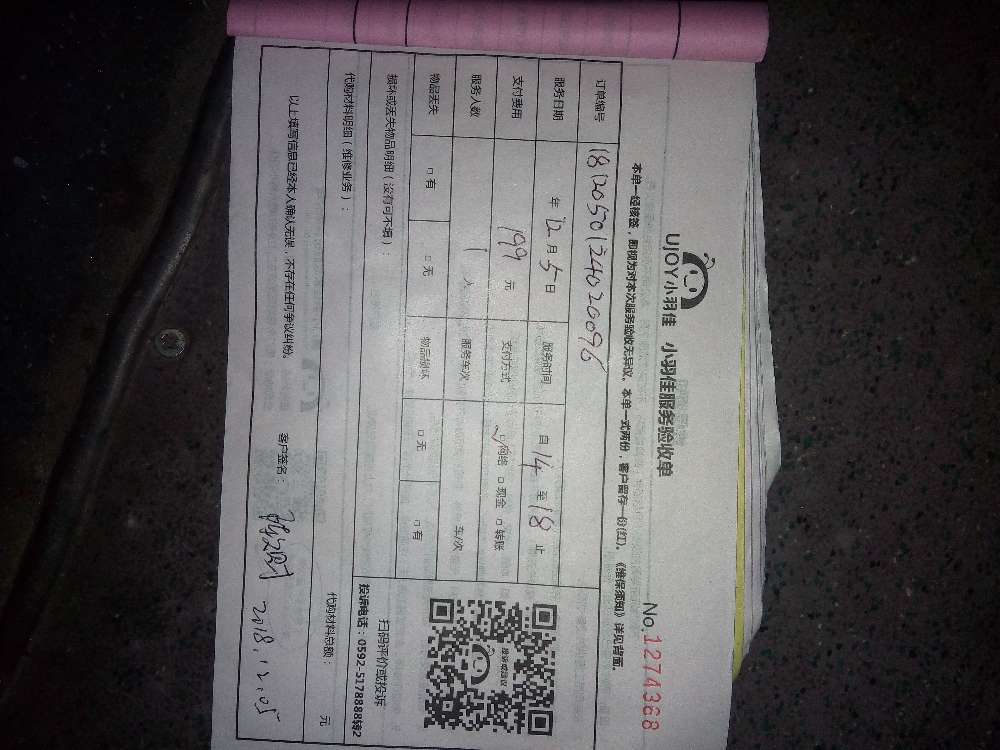 UJOY小羽佳 小羽佳服务验收单
No.1274368
本单一经核签，即视为对本次服务验收无异议。本单一式两份，客户留存一份(红)。《维保须知》详见背面。
订单编号 1812050124020096
服务日期 年 12 月 5 日 服务时间 自 14 至 18 止
支付费用 199 元 支付方式 ☑网络 □现金 □转账
服务人数 1 人 服务车次 车/次
物品丢失 □有 □无 物品损坏 □无 □有
损坏或丢失物品明细（没有可不填）：
扫码评价或投诉
投诉电话：0592-5178888转2
代购材料明细（维修业务）： 代购材料总额： 元
以上填写信息已经本人确认无误，不存在任何争议纠纷。 客户签名： 2018.12.05